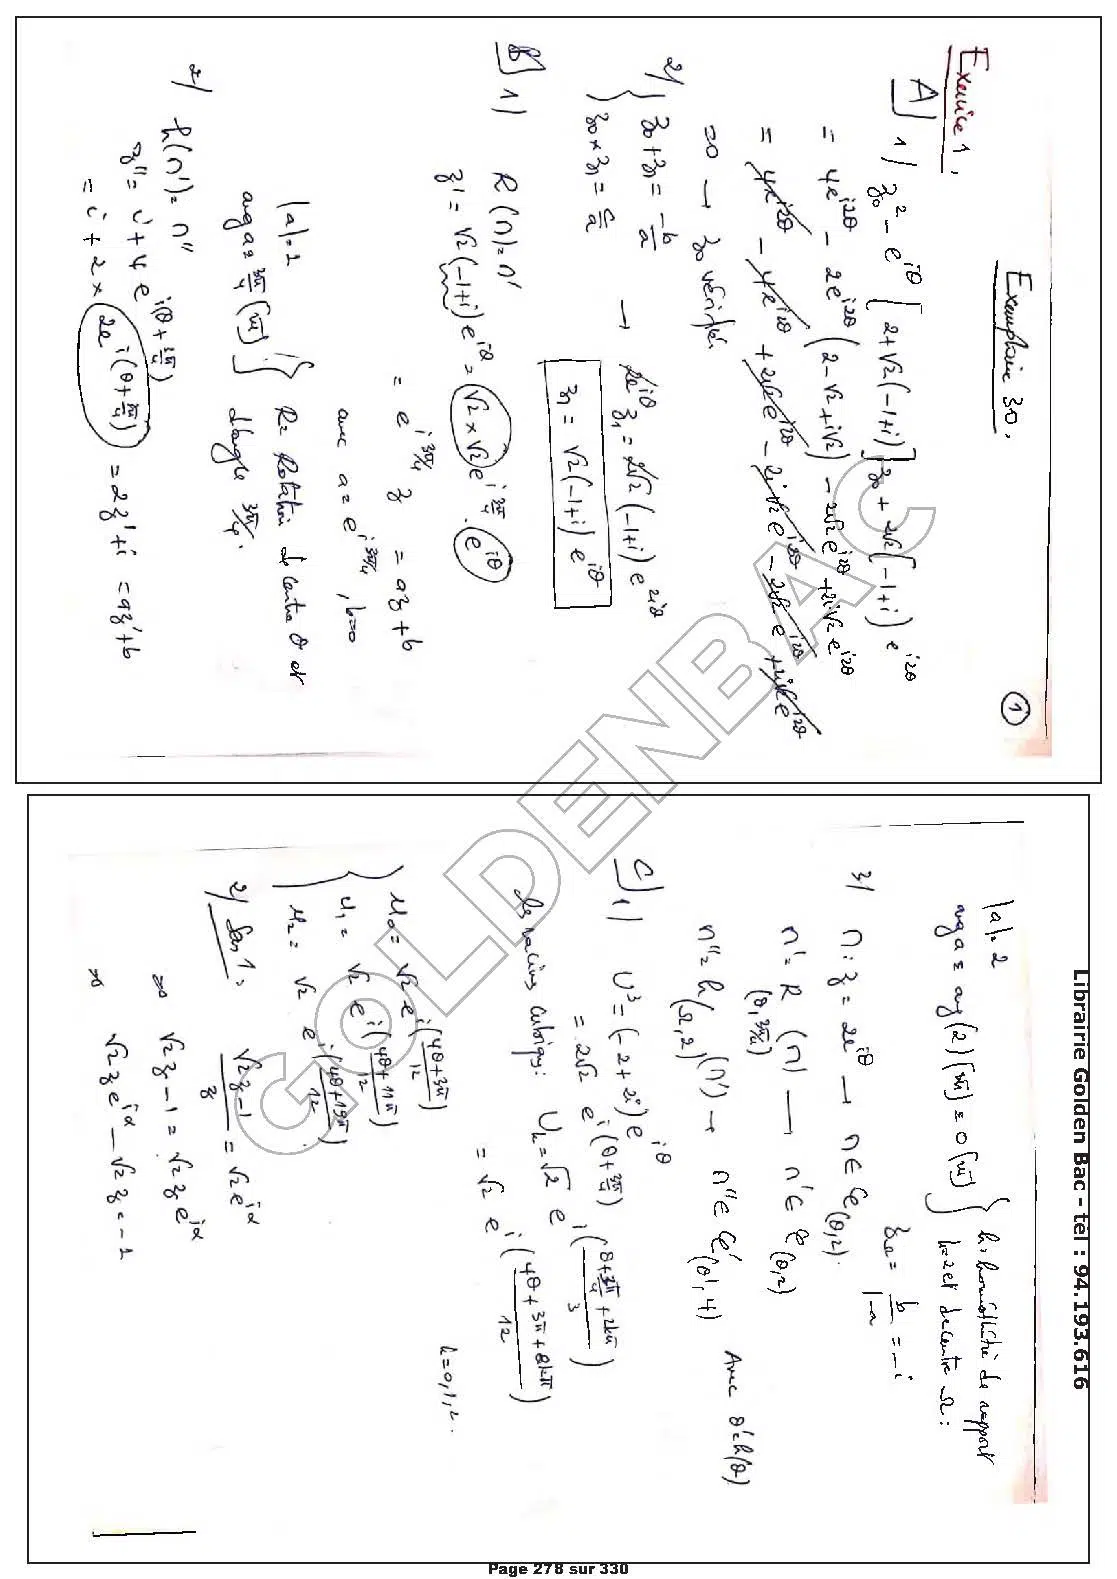 Exemplaire 30.
1
Exercice 1.
A) 1) z₀² - e^{iθ} [2+√2(-1+i)] z₀ + 2√2(-1+i) e^{i2θ}
= 4e^{i2θ} - 2e^{i2θ} (2-√2+i√2) - 2√2e^{i2θ} + 2i√2 e^{i2θ}
= 4e^{i2θ} - 4e^{i2θ} + 2√2e^{i2θ} - 2i√2e^{i2θ} - 2√2e^{i2θ} + 2i√2e^{i2θ}
= 0 → z₀ vérifié.
2) { z₀+z₁ = -b/a
z₀×z₁ = c/a → 2e^{iθ} z₁ = 2√2(-1+i) e^{2iθ}
z₁ = √2(-1+i) e^{iθ}
B) 1) R(M) = M'
z' = √2(-1+i)e^{iθ} = √2×√2 e^{i3π/4} . e^{iθ}
= e^{i3π/4} z = az+b
avec a = e^{i3π/4}, b=0
|a|=1
arg a = 3π/4 [2π] } R = Rotation de centre O et
d'angle 3π/4.
2) h(M') = M''
z'' = i + 4e^{i(θ+3π/4)}
= i + 2 × 2e^{i(θ+3π/4)} = 2z'+i = az'+b
|a|=2
arg a = arg(2)[2π] = 0[2π] } h: homothétie de rapport
k=2 et de centre Ω:
z_Ω = b/(1-a) = -i
3) M: z = 2e^{iθ} → M ∈ 𝒞(O,2).
M' = R(O,3π/4) (M) → M' ∈ 𝒞(O,2)
M'' = h(Ω,2) (M') → M'' ∈ 𝒞'(O',4) Avec O'=h(O)
C) 1) U³ = (-2+2i)e^{iθ}
= 2√2 e^{i(θ+3π/4)}
les racines cubiques: U_k = √2 e^{i((θ+3π/4+2kπ)/3)}
= √2 e^{i((4θ+3π+8kπ)/12)} k=0,1,2.
{ u₀ = √2 e^{i((4θ+3π)/12)}
u₁ = √2 e^{i((4θ+11π)/12)}
u₂ = √2 e^{i((4θ+19π)/12)}
2) (√2z-1)/z = √2e^{iα}
⇒ √2z-1 = √2ze^{iα}
⇒ √2ze^{iα} - √2z = -1
Librairie Golden Bac - tèl : 94.193.616
GOLDENBAC
Page 278 sur 330